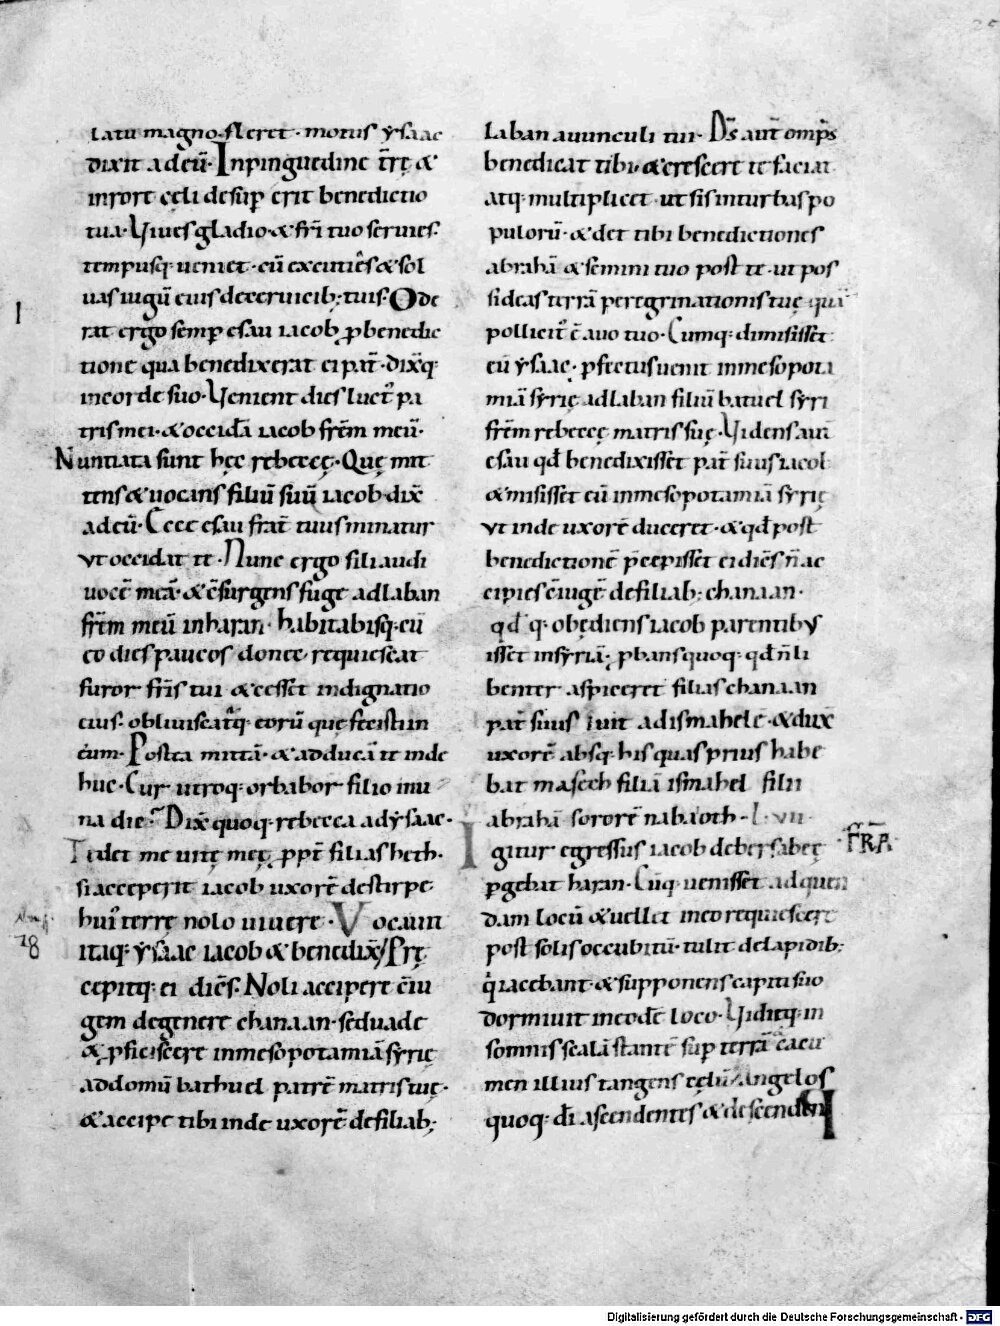 latu magno fleret · motus ẏsaac
dixit ad eū · Inpinguedine t̄rę &
inrore cęli desup̱ erit benedictio
tua · Viues gladio · & fr̄i tuo seruies ·
tempusq; ueniet · cū excuties & sol
uas iugū eius deceruicib; tuis · Ode
rat ergo semp̱ esau iacob p̱ benedic
tione qua benedixerat ei pat̄ · dix̄q;
incorde suo · Venient dies luct᷒ pa
tris mei · & occidā iacob fr̄em meū ·
Nuntiata sunt hęc rebeccę · Quę mit
tens & uocans filiū suū iacob dix̄
adeū · Ecce esau frat̄ tuus minatur
vt occidat te · Nunc ergo fili audi
uocē meā · & c̄surgens fuge adlaban
fr̄em meū inharan · habitabisq; cū
eo dies paucos donec requiescat
furor fr̄is tui · & cesset indignatio
eius · obliuiscatq; eorū que fecisti in
eum · Postea mittā · & adducā te inde
huc · Cur utroq; orbabor filio in u
na die · Dix̄ quoq; rebecca adẏsaac ·
Tedet me uitę meę p̱pt̄ filias heth ·
siacceperit iacob uxorē destirpe
hui᷒ terrę nolo uiuere · Vocauit
itaq; ẏsaac iacob & benedix̄ / Prę
cepitq; ei dicēs · Noli accipere c̄iu
gem degenere chanaan · seduade
& p̱ficiscere inmesopotamiā sẏrię
addomū bathuel patrē matris tuę ·
& accipe tibi inde uxorē defiliab;
laban auunculi tui · D̄s aut̄ omp̄s
benedicat tibi · & crescere te faciat
atq; multiplicet · ut sis inturbas po
pulorū · & det tibi benedictiones
abrahā & semini tuo post te · ut pos
sideas terrā peregrinationis tuę quā
pollicit᷒ ē auo tuo · Cumq; dimisisset
eū ẏsaac · p̱fectus uenit inmesopota
miā sẏrię adlaban filiū batuel sẏri
fr̄em rebeccę matris suę · Videns aut̄
esau qđ benedixisset pat̄ suus iacob
& misisset eū inmesopotamiā sẏrię
vt inde uxorē duceret · & qđ post
benedictionē p̄cepisset ei dicēs ñ ac
cipies c̄iugē defiliab; chanaan ·
qđq; obędiens iacob parentibus
isset insẏriā · p̱bans quoq; qđ ñ li
benter aspiceret filias chanaan
pat̄ suus iuit adismahelē · & dux̄
uxorē absq; his quas prius habe
bat maseeh filiā ismahel filii
abrahā sororē nabaoth · L. vii
Igitur egressus iacob debersabeę
FR̄A
p̱gebat haran · Cūq; uenisset adquen
dam locū & uellet in eo requiescere
post solis occubitū · tulit delapidib;
q̇ iacebant · & supponens capiti suo
dormiuit ineodē loco · Viditq; in
somnis scalā stantē sup̱ terrā & cacu
men illius tangens cęlū / Angelos
quoq; đi ascendentes & descenden